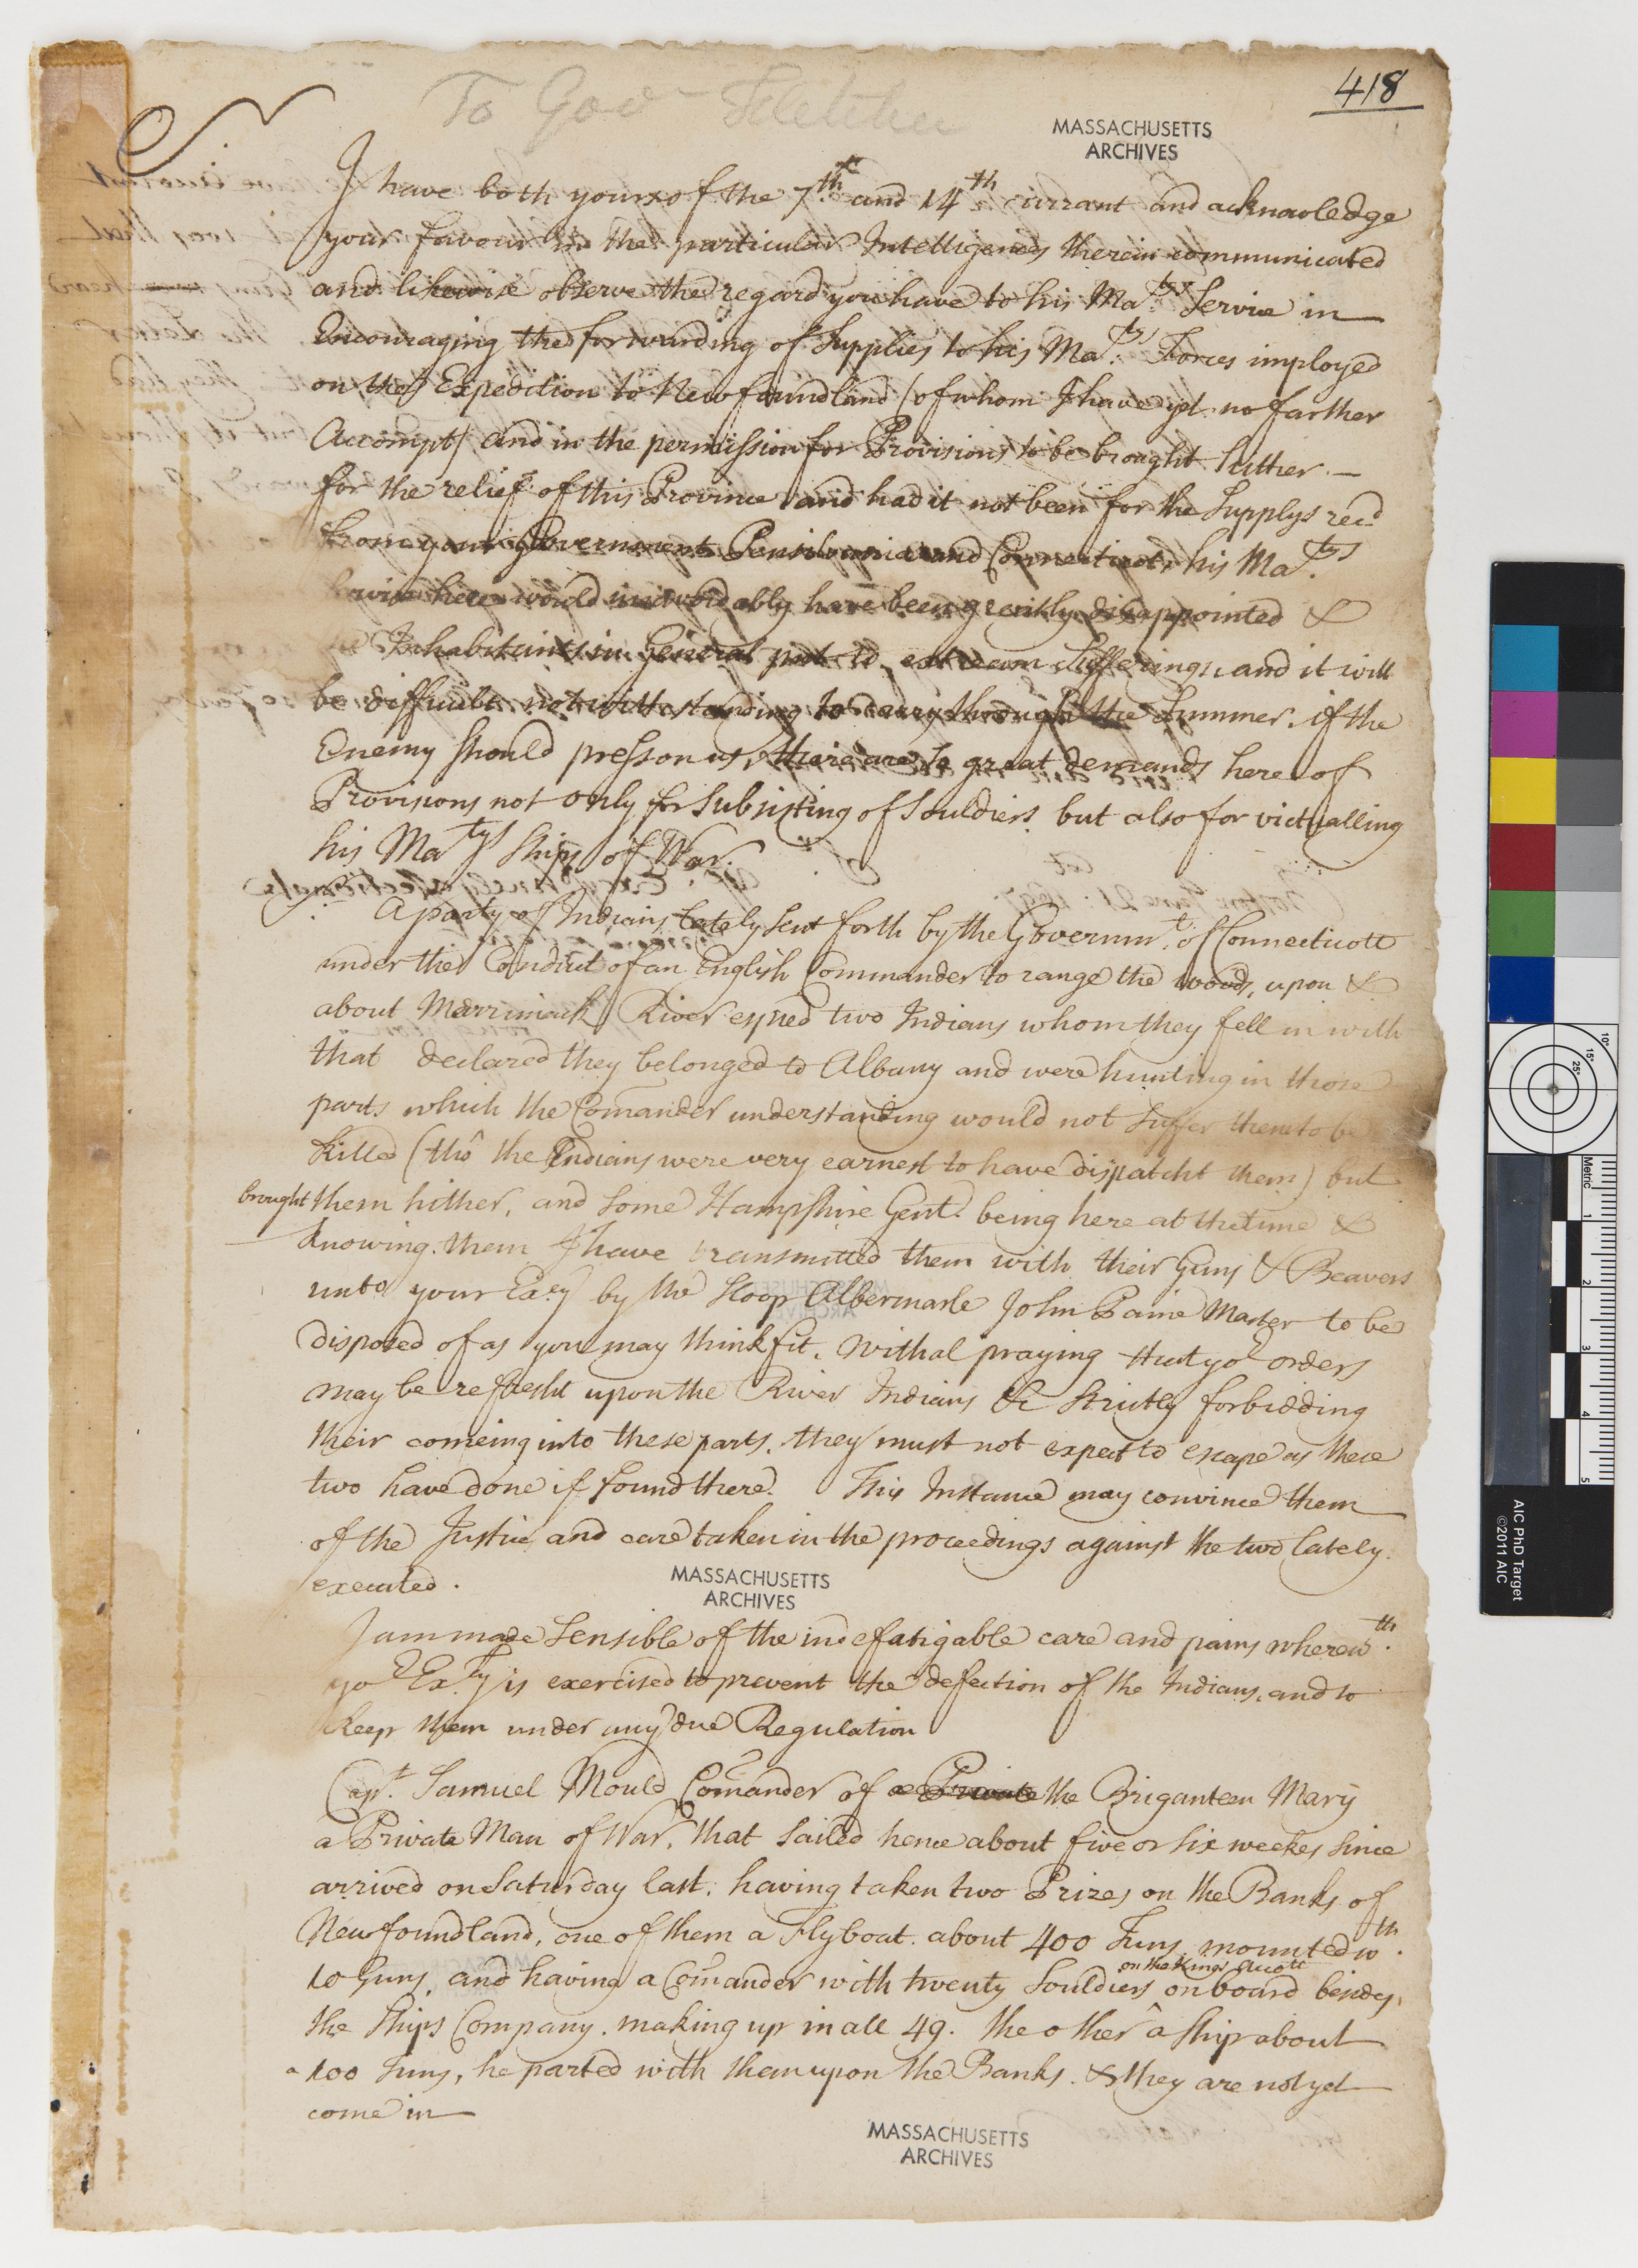 418
To Gov^r Fletcher
MASSACHUSETTS
ARCHIVES
S^r
I have both yours of the 7^th. and 14^th currant and acknowledge
your favour in the particular Intelligences therein communicated
and likewise observe the regard you have to his Ma^tys. Service in
Encouraging the forwarding of Supplies to his Ma^tys. Forces imployed
on the Expedition to Newfoundland (of whom I have yet no farther
Accompt) and in the permission for Provisions to be brought hither
for the relief of this Province and had it not been for the Supplys rec^d
from your Government Pensilvania and Connecticot, his Ma^tys.
here would unavoidably have been greatly disappointed &
Inhabitants in General put to extream Sufferings, and it will
be difficult notwithstanding to carry through the Summer. if the
Enemy should press on us, there are so great demands here of
Provisions not only for Subsisting of Souldiers but also for victualling
his Ma^tys Ships of War.
A party of Indians lately sent forth by the Governm^t. of Connecticott
under the Conduct of an English Commander to range the woods, upon &
about Merrimack River espied two Indians whom they fell in with
that declared they belonged to Albany and were hunting in those
parts which the Comander understanding would not suffer them to be
killed (tho the Indians were very earnest to have dispatcht them) but
brought them hither, and some Hampshire Gent^n. being here at the time &
knowing them I have transmitted them with their Guns & Beavers
unto your Ex^cy by the Sloop Albermarle John Paine Master to be
disposed of as you may think fit. Withal praying that yo^r orders
may be refresht upon the River Indians &c Strictly forbidding
their comeing into these parts. they must not expect to escape as these
two have done if found there. This Instance may convince them
of the Justice and care taken in the proceedings against the two lately
executed.
MASSACHUSETTS
ARCHIVES
I am made Sensible of the indefatigable care and pains wherew^th.
yo^r Ex^cy is exercised to prevent the defection of the Indians, and to
keep them under any due Regulation
Cap^t. Samuel Mould Comander of a Private the Briganteen Mary
a Private Man of War, that sailed hence about five or six weekes since
arrived on Saturday last. having taken two Prizes on the Banks of
Newfoundland, one of them a Flyboat about 400 Tuns, mounted w^th.
on the Kings Acott
10 Guns, and having a Comander with twenty Souldiers on board besides
the Ships Company. making up in all 49. the other a Ship about
100 Tuns, he parted with them upon the Banks. & they are not yet
come in
MASSACHUSETTS
ARCHIVES
AIC PhD Target
©2011 AIC
Metric
1
2
3
4
5
10°
15°
25°